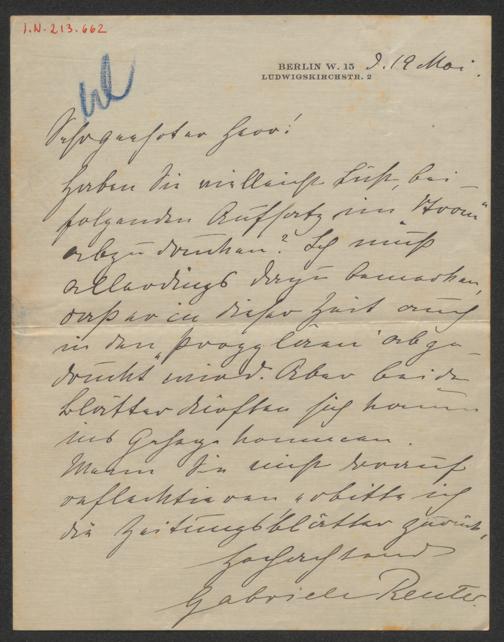 I.N. 213.662
BERLIN W. 15 d. 19 Mai.
LUDWIGSKIRCHSTR. 2
Sehr geehrter Herr!
Haben Sie vielleicht Lust, bei-
folgenden Aufsatz im "Strom"
abzudrucken? Ich muß
allerdings dazu bemerken,
daß er in dieser Zeit auch
in den "Propyläen" abge-
druckt wird. Aber beide
Blätter dürften sich kaum
ins Gehege kommen.
Wenn Sie nicht darauf
reflectieren erbitte ich
die Zeitungsblätter zurück,
Hochachtend
Gabriele Reuter.